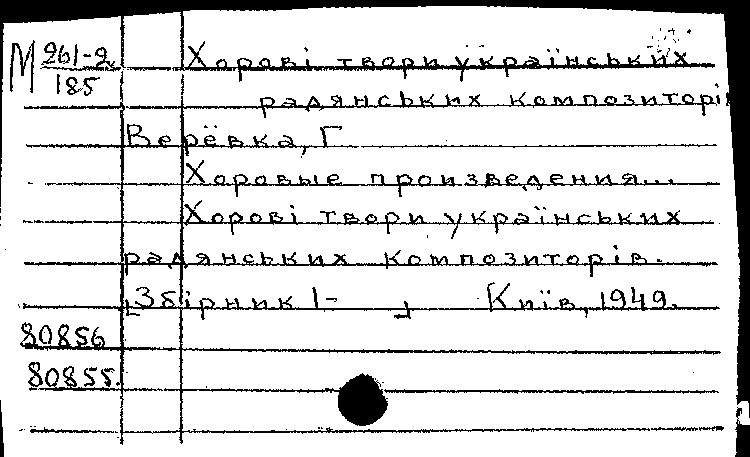 М 261-2 Хорові твори українських
185
радянських композиторі
Верёвка, Г
Хоровые произведения...
Хорові твори українських
радянських композиторів.
[Збірник 1- ] Київ, 1949.
80856
80855.